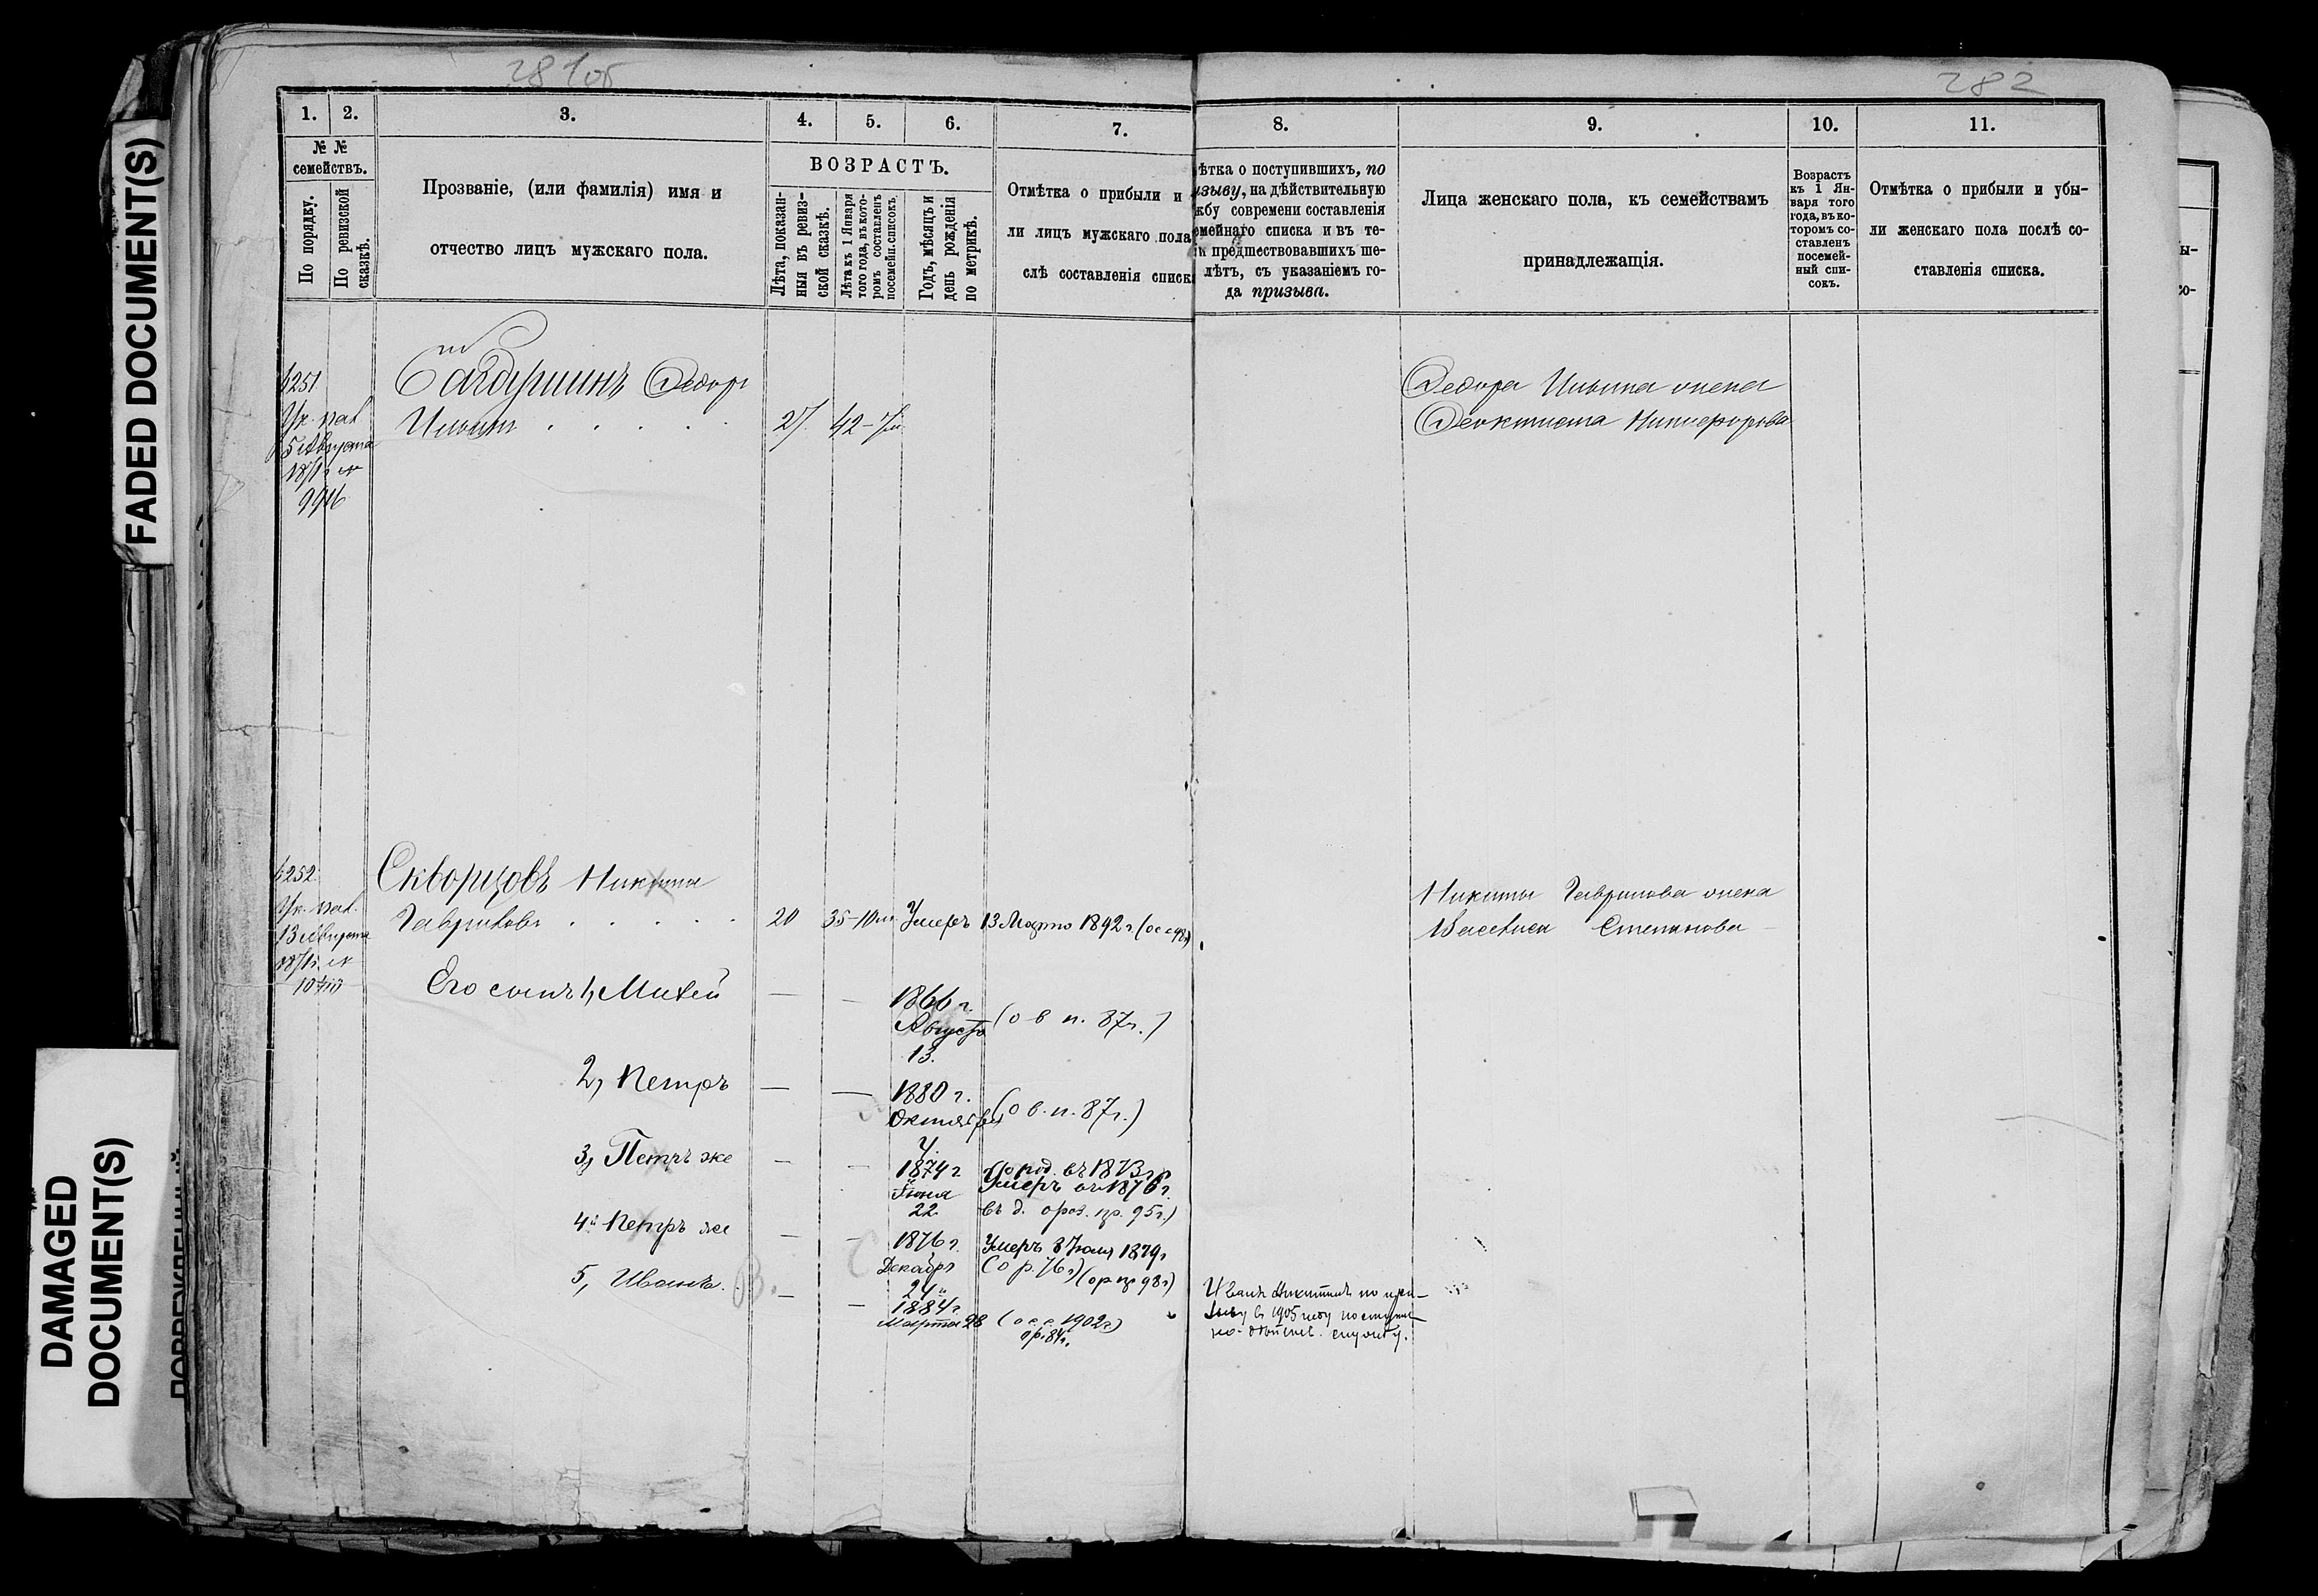 FADED DOCUMENT(S)
DAMAGED
DOCUMENT(S)
282
1.
2.
3.
4.
5.
6.
7.
8.
9.
10.
11.
№ №
семействъ.
По порядку.
По ревизской
сказкѣ.
Прозваніе, (или фамилія) имя и
отчество лицъ мужскаго пола.
ВОЗРАСТЪ.
Лѣта, показан-
ныя въ ревиз-
ской сказкѣ.
Лѣта къ 1 Января
того года, въ кото-
ромъ составленъ
посемейн. списокъ.
Годъ, мѣсяцъ и
день рожденія
по метрикѣ.
Отмѣтка о прибыли и
ли лицъ мужскаго пола
слѣ составленія списк
ѣтка о поступившихъ, по
изыву, на дѣйствительную
жбу современи составленія
емейнаго списка и въ те-
и предшествовавшихъ ше-
лѣтъ, съ указаніемъ го-
да призыва.
Лица женскаго пола, къ семействамъ
принадлежащія.
Возрастъ
къ 1 Ян-
варя того
года, въ ко-
торомъ со-
ставленъ
посемей-
ный спи-
сокъ.
Отмѣтка о прибыли и убы-
ли женскаго пола послѣ со-
ставленія списка.
1251
Федоръ
Ильинъ
27
42
Федора Ильина жена
Феоктиста Никифорова
1252
Скворцовъ Никита
Гавриловъ
20
35
Умеръ 13 Марта 1892 г.
Никиты Гаврилова жена
Василиса Степанова
Его сынъ 1, Михей
1866 г.
Августа
13.
(о в п. 87г.)
2, Петръ
1880 г.
Октября
(о в. п. 87г.)
3, Петръ же
1874 г
Іюня
22
Умеръ въ 1876 г.
4й Петръ же
1876 г.
Декабря
24
Умеръ 8 Іюля 1879г
(о р. 76г)
5, Иванъ.
1884 г.
Марта 28
(о с с 1902г)
о р. 84г.
Иванъ Никитинъ по при-
зыву в 1905 году поступил
на дѣйств. службу.